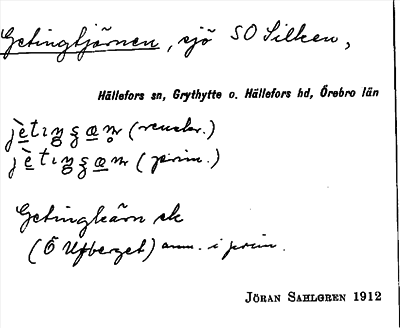 Getingtjärnen, sjö SO Silken,
Hällefors sn, Grythytte o. Hällefors hd, Örebro län
(renskr.)
(prim.)
Getingkärn ek
(Ö Ufberget) anm. i prim.
JÖRAN SAHLGREN 1912